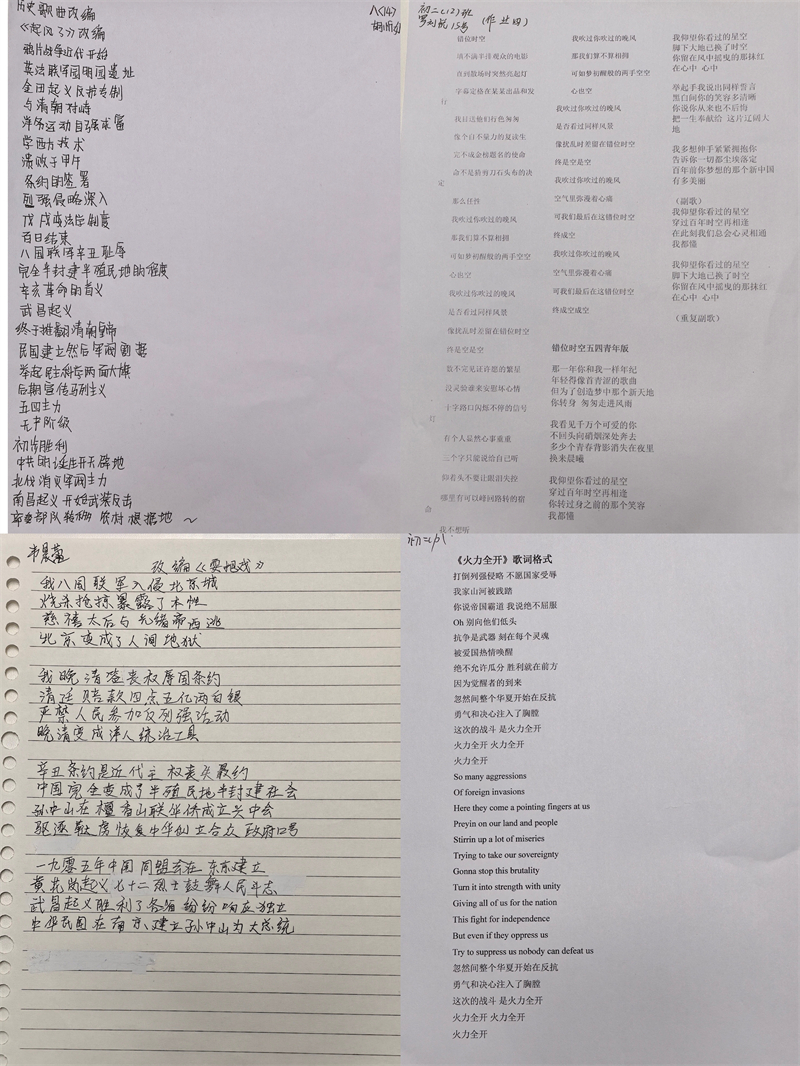 历史歌曲改编
八(14)
《起风了》改编
鸦片战争近代开始
英法联军圆明园遗址
金田起义反抗专制
与清朝对峙
洋务运动自强求富
学西方技术
惨败于甲午
条约的签署
列强侵略深入
戊戌变法学制度
百日结束
八国联军辛丑耻辱
完全半封建半殖民地的程度
辛亥革命的首义
武昌起义
终于推翻清朝皇帝
民国建立然后军阀割据
举起民主科学两面大旗
后期宣传马列主义
五四主力
无产阶级
初步胜利
中共的诞生开天辟地
北伐消灭军阀主力
南昌起义开始武装反击
部队转移农村根据地～
初二(12)班
15号
错位时空
填不满半排观众的电影
直到散场时突然亮起灯
字幕定格在某某出品和发
行
我目送他们行色匆匆
像个自不量力的复读生
完不成金榜题名的使命
命不是捡剪刀石头布的决
定
那么任性
我吹过你吹过的晚风
那我们算不算相拥
可如梦初醒般的两手空空
心也空
我吹过你吹过的晚风
是否看过同样风景
像扰乱时差留在错位时空
终是空是空
数不完见证许愿的繁星
没灵验谁来安慰坏心情
十字路口闪烁不停的信号
灯
有个人显然心事重重
三个字只能说给自己听
仰着头不要让眼泪失控
哪里有可以峰回路转的宿
命
我不想听
我吹过你吹过的晚风
那我们算不算相拥
可如梦初醒般的两手空空
心也空
我吹过你吹过的晚风
是否看过同样风景
像扰乱时差留在错位时空
终是空是空
我吹过你吹过的晚风
空气里弥漫着心痛
可我们最后在这错位时空
终成空
我吹过你吹过的晚风
空气里弥漫着心痛
可我们最后在这错位时空
终成空成空
错位时空五四青年版
那一年你和我一样年纪
年轻得像首青涩的歌曲
但为了创造梦中那个新天地
你转身 匆匆走进风雨
我看见千万个可爱的你
不回头向硝烟深处奔去
多少个青春背影消失在夜里
换来晨曦
我仰望你看过的星空
穿过百年时空再相逢
你转过身之前的那个笑容
我都懂
我仰望你看过的星空
脚下大地已换了时空
你留在风中摇曳的那抹红
在心中 心中
举起手我说出同样誓言
黑白间你的笑容多清晰
你说你从来也不后悔
把一生奉献给 这片辽阔大
地
我多想伸手紧紧拥抱你
告诉你一切都尘埃落定
百年前你梦想的那个新中国
有多美丽
（副歌）
我仰望你看过的星空
穿过百年时空再相逢
在此刻我们总会心灵相通
我都懂
我仰望你看过的星空
脚下大地已换了时空
你留在风中摇曳的那抹红
在心中 心中
（重复副歌）
改编《要想戏》
我八国联军入侵北京城
烧杀抢掠暴露了本性
慈禧太后与光绪帝西逃
北京变成了人间地狱
我晚清签丧权辱国条约
清廷赔款四点五亿两白银
严禁人民参加反列强活动
晚清变成洋人统治工具
辛丑条约是近代主权丧失最约
中国完全变成了半殖民地半封建社会
孙中山在檀香山联华侨成立兴中会
驱逐鞑虏恢复中华创立合众政府口号
一九零五年中国同盟会在东京建立
黄花岗起义七十二烈士鼓舞人民斗志
武昌起义胜利了各省纷纷响应独立
中华民国在南京建立孙中山为大总统
《火力全开》歌词格式
打倒列强侵略 不愿国家受辱
我家山河被践踏
你说帝国霸道 我说绝不屈服
Oh 别向他们低头
抗争是武器 刻在每个灵魂
被爱国热情唤醒
绝不允许瓜分 胜利就在前方
因为觉醒者的到来
忽然间整个华夏开始在反抗
勇气和决心注入了胸膛
这次的战斗 是火力全开
火力全开 火力全开
火力全开
So many aggressions
Of foreign invasions
Here they come a pointing fingers at us
Preyin on our land and people
Stirrin up a lot of miseries
Trying to take our sovereignty
Gonna stop this brutality
Turn it into strength with unity
Giving all of us for the nation
This fight for independence
But even if they oppress us
Try to suppress us nobody can defeat us
忽然间整个华夏开始在反抗
勇气和决心注入了胸膛
这次的战斗 是火力全开
火力全开 火力全开
火力全开